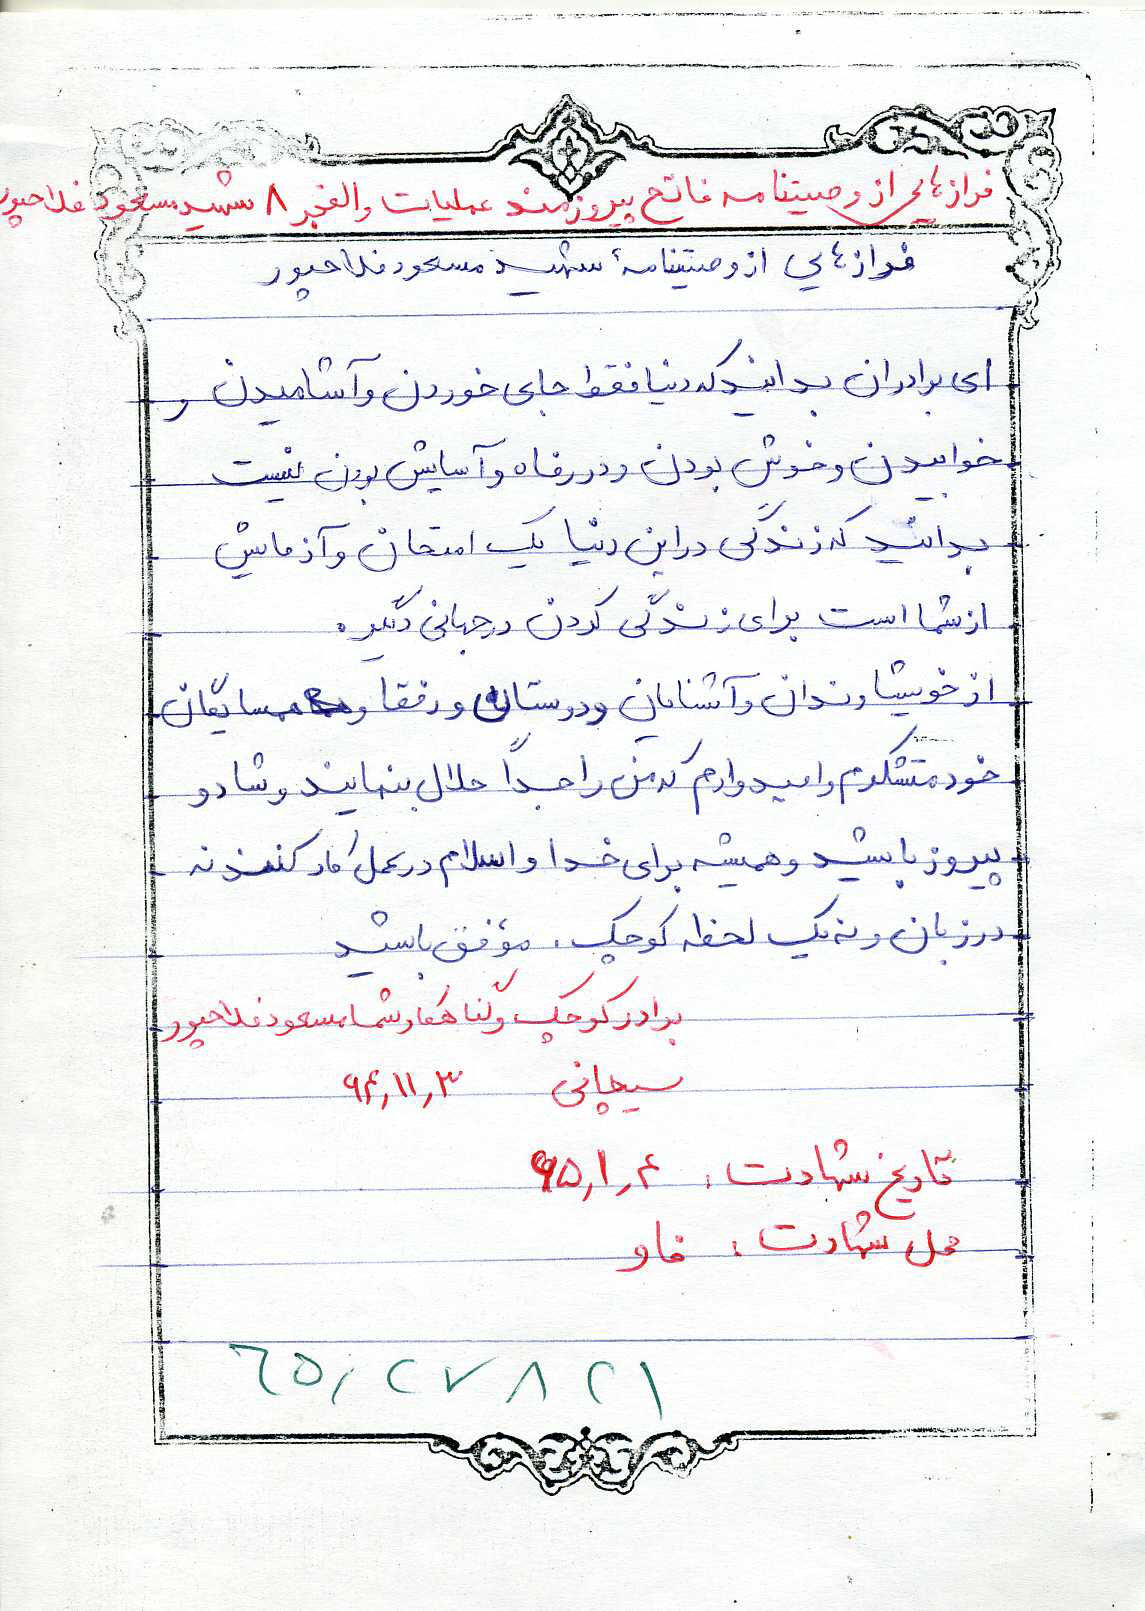 فرازهایی از وصیتنامه فاتح پیروزمند عملیات والفجر ۸ شهید مسعود فلاحپور
فرازهایی از وصیتنامهٔ شهید مسعود فلاحپور
ای برادران بدانید که دنیا فقط جای خوردن و آشامیدن و
خوابیدن و خوش بودن و در رفاه و آسایش بودن نیست
بدانید که زندگی در این دنیا یک امتحان و آزمایش
از شما است برای زندگی کردن در جهانی دگیر.
از خویشاوندان و آشنایان و دوستان و رفقا و همسایگان
خود متشکرم و امیدوارم که من را جداً حلال بنمایند و شاد و
پیروز باشید و همیشه برای خدا و اسلام در عمل کار کنید نه
در زبان و نه یک لحظه کوچک. موفق باشید
برادر کوچک و گناهکار شما مسعود فلاحپور
سیچانی ۶۴٫۱۱٫۳
تاریخ شهادت: ۶۵٫۱٫۴
محل شهادت: فاو
۶۵٫۲۷۸۲۱